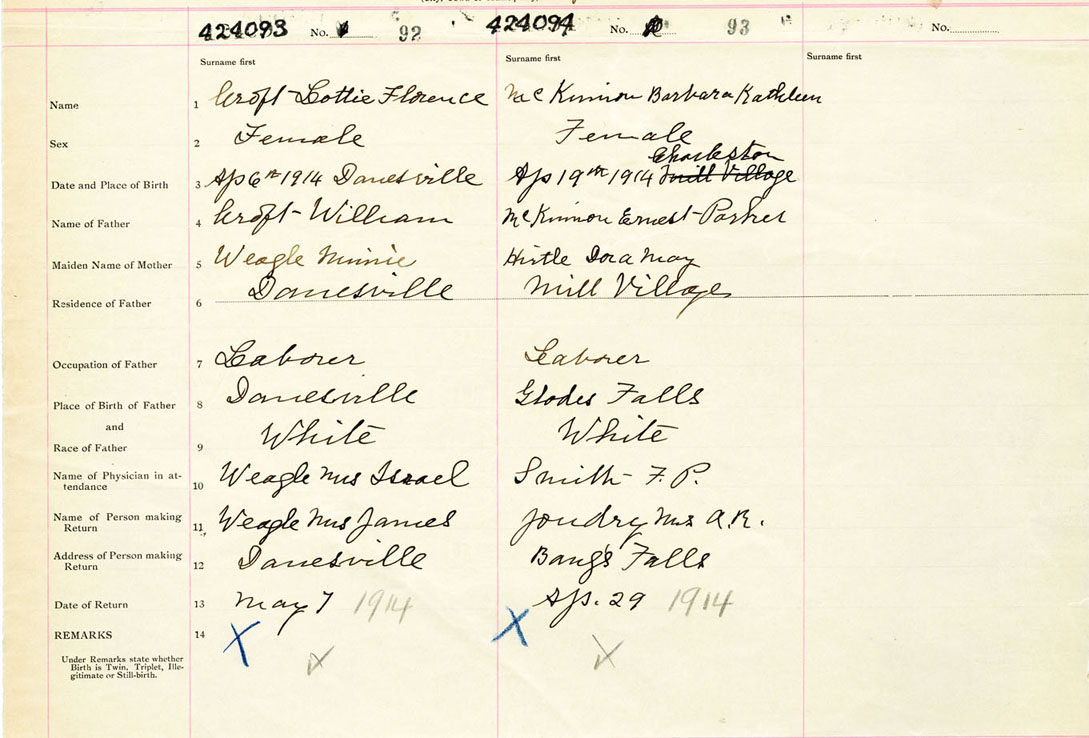 424093 No. 92 424094 No. 93 No.
Surname first Surname first Surname first
Name 1 Croft Lottie Florence McKinnon Barbara Kathleen
Sex 2 Female Female
Charleston
Date and Place of Birth 3 Ap 6th 1914 Danesville Ap 19th 1914 Mill Village
Name of Father 4 Croft William McKinnon Ernest Parker
Maiden Name of Mother 5 Weagle Minnie Hirtle Dora May
Residence of Father 6 Danesville Mill Village
Occupation of Father 7 Laborer Laborer
Place of Birth of Father 8 Danesville Glodes Falls
and
Race of Father 9 White White
Name of Physician in at-
tendance 10 Weagle Mrs Israel Smith F. P.
Name of Person making
Return 11 Weagle Mrs James Joudry Mrs A.R.
Address of Person making
Return 12 Danesville Bangs Falls
Date of Return 13 May 7 1914 Ap. 29 1914
REMARKS 14 X X
Under Remarks state whether
Birth is Twin, Triplet, Ille-
gitimate or Still-birth.